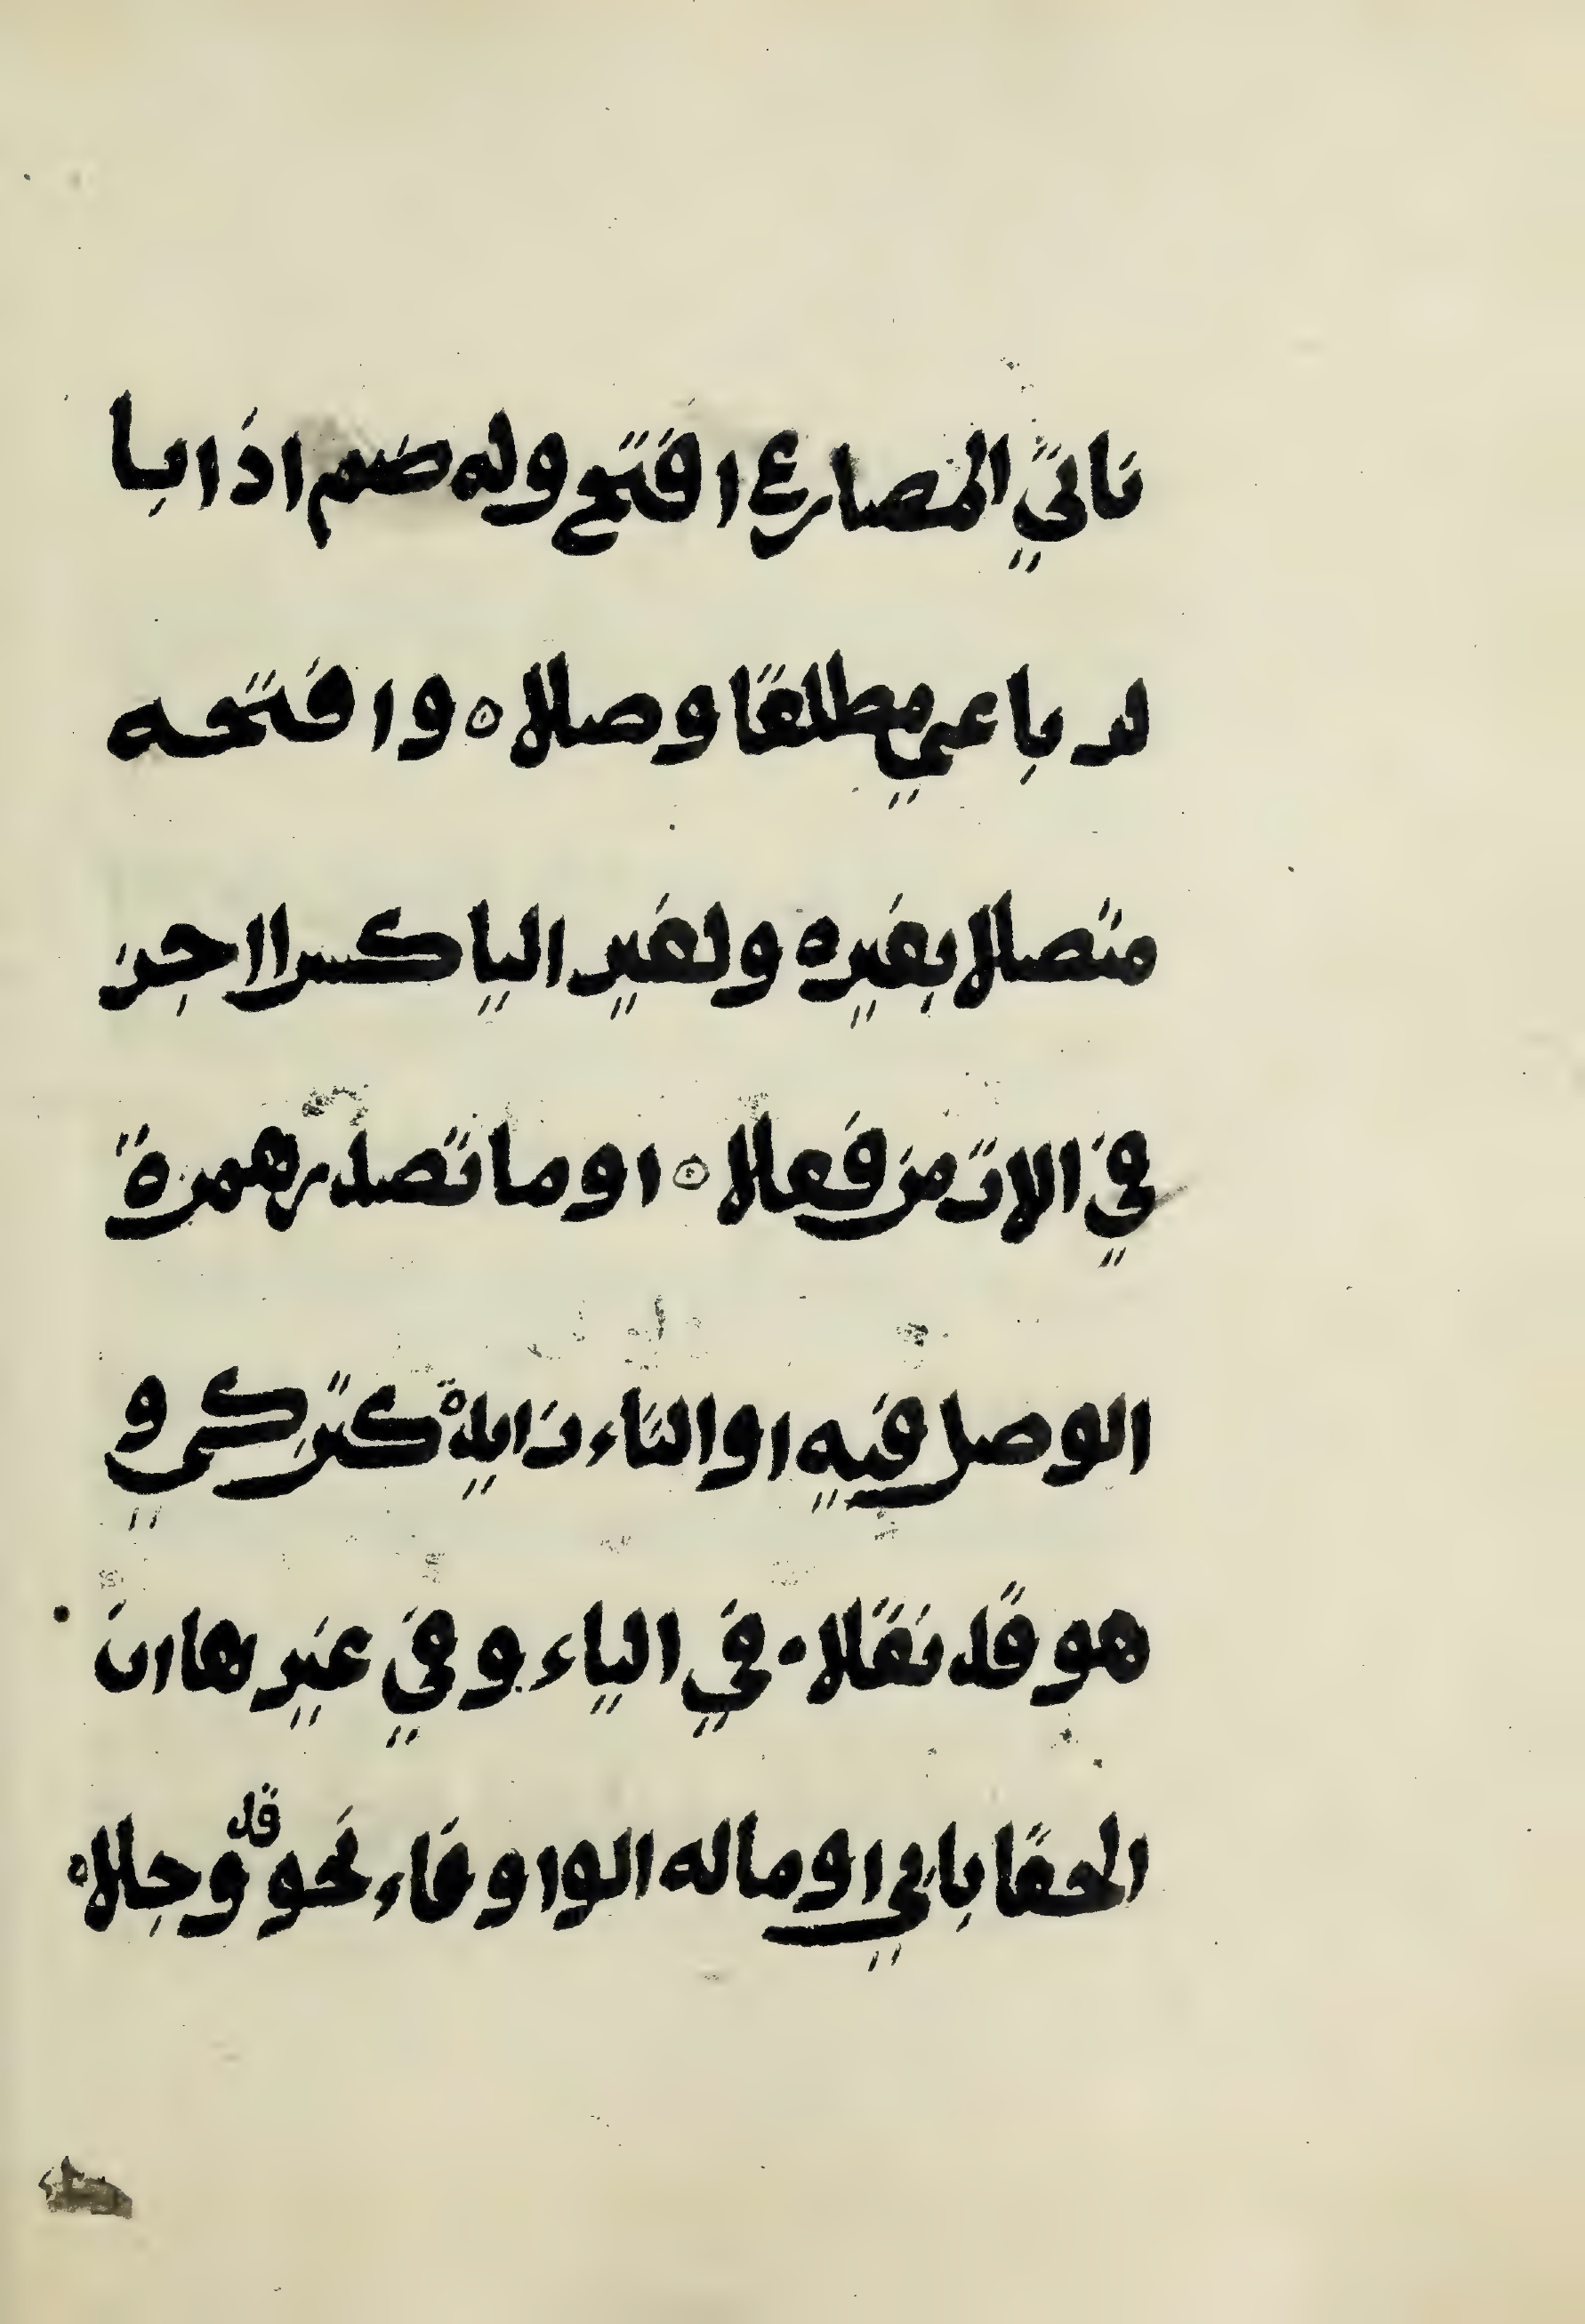 ناتي المضارع افتتح وله ضم اذا ابا
لرباعي مطلقا وصلا ه وافتحه
متصلا بغيره ولغير اليا كسرا اجز
في الات من فعلا ه او ما تصدر همزة
الوصل فيه او التاء زايدة كتزكي و
هو قد نقلا ه في الياء وفي غيرها ان
الحقا بابي او ماله الواو فاء نحو قد وجلا ه